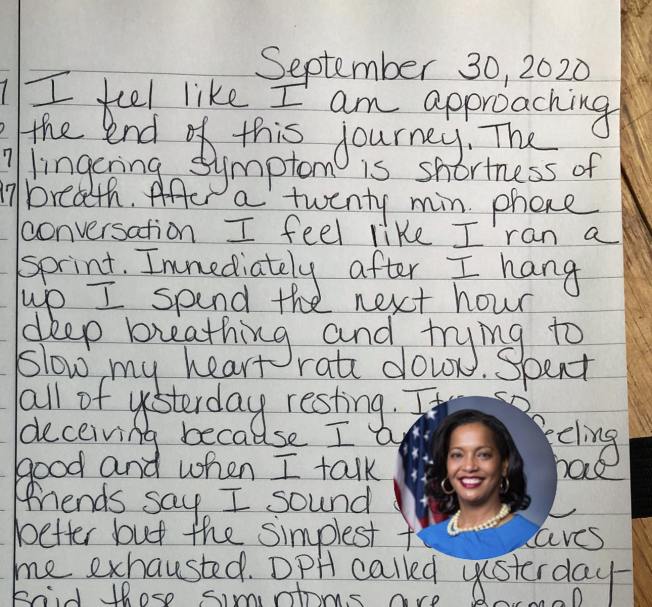 September 30, 2020
I feel like I am approaching
the end of this journey. The
lingering symptom is shortness of
breath. After a twenty min. phone
conversation I feel like I ran a
sprint. Immediately after I hang
up I spend the next hour
deep breathing and trying to
slow my heart rate down. Spent
all of yesterday resting. so
deceiving because I feeling
good and when I talk
friends say I sound
better but the simplest
me exhausted. DPH called yesterday
said these symptoms are normal